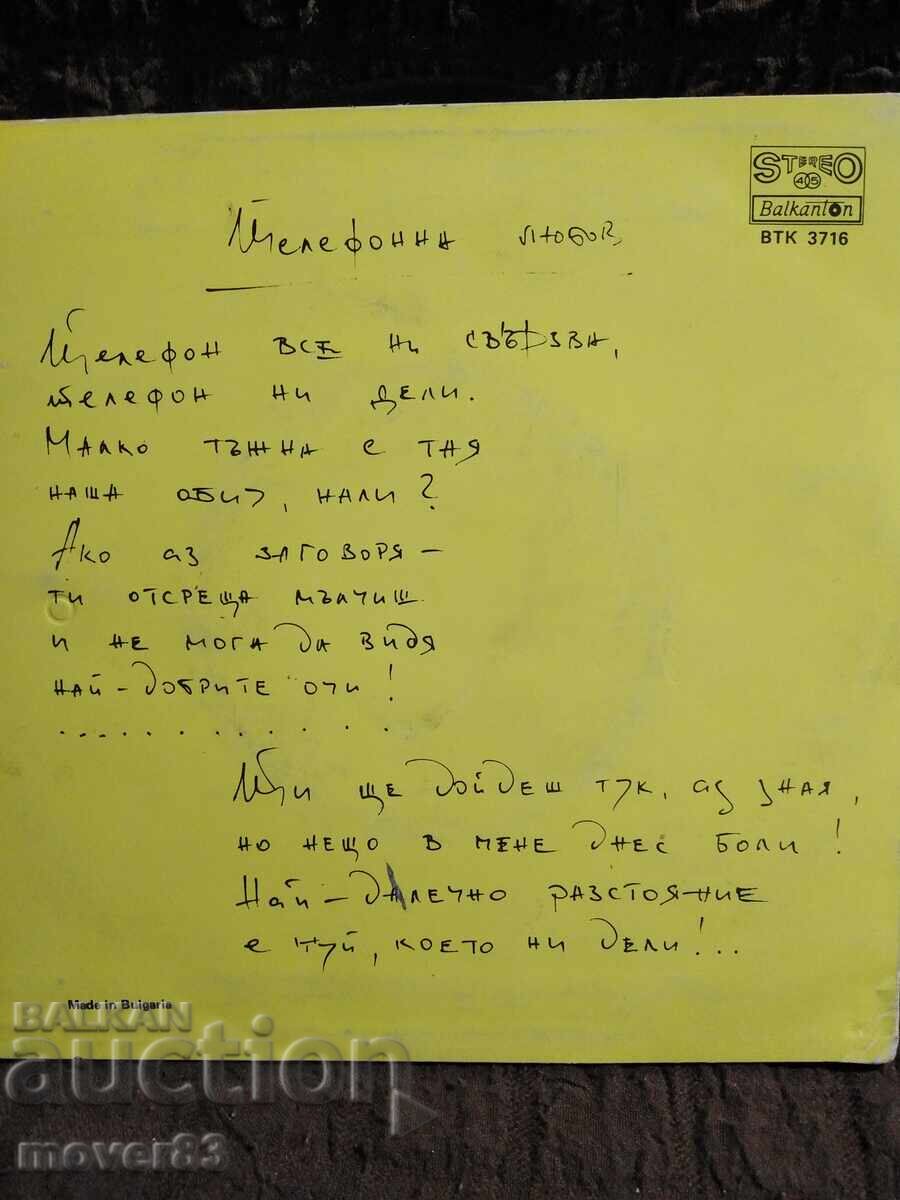 STEREO
45
Balkanton
ВТК 3716
Телефонна любов
Телефон все ни свързва,
телефон ни дели.
Малко тъжна е тая
наша обич, нали?
Ако аз заговоря –
ти отсреща мълчиш
и не мога да видя
най-добрите очи!
............
Ти ще дойдеш тук, аз зная,
но нещо в мене днес боли!
Най-далечно разстояние
е туй, което ни дели!...
Made in Bulgaria
BALKAN
auction
mover83